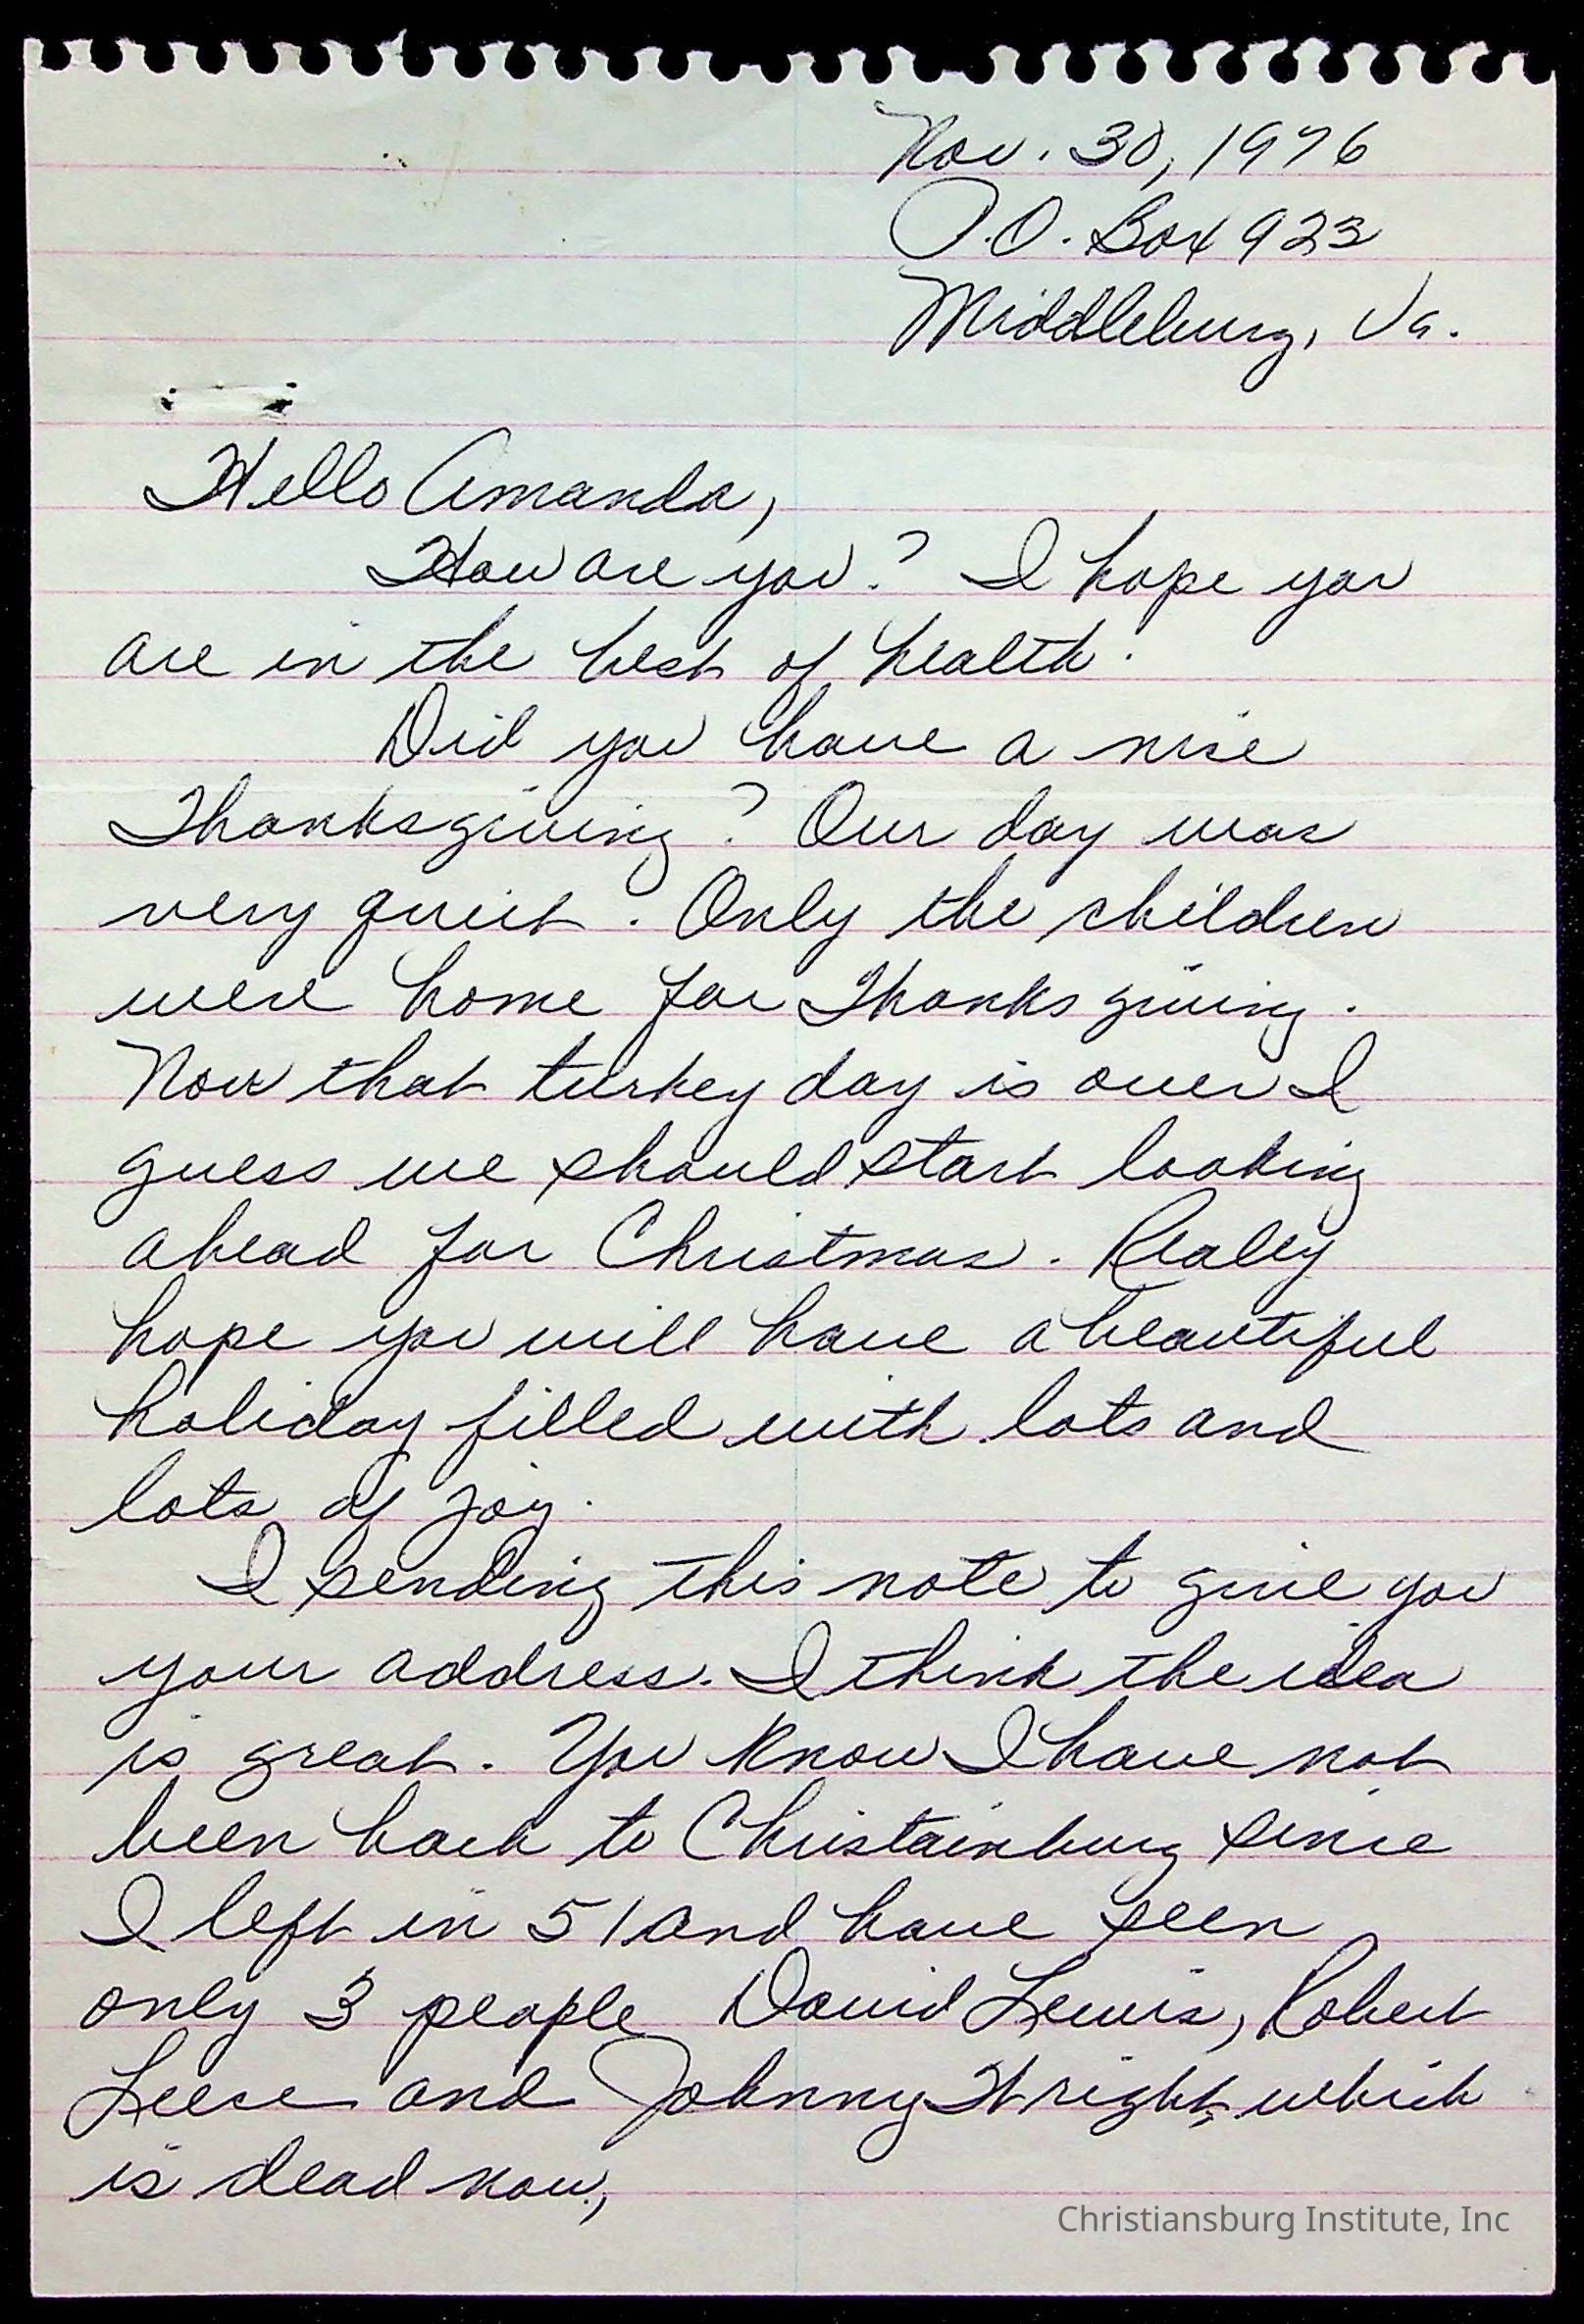 Nov. 30, 1976
P.O. Box 923
Middleburg, Va.
Hello Amanda,
How are you? I hope you
are in the best of health.
Did you have a nice
Thanksgiving? Our day was
very quiet. Only the children
were home for Thanksgiving.
Now that turkey day is over I
guess we should start looking
ahead for Christmas. Realey
hope you will have a beautiful
holiday filled with lots and
lots of joy.
I sending this note to give you
your address. I think the idea
is great. You know I have not
been back to Christainburg since
I left in 51 and have seen
only 3 people David Lewis, Robert
Leese and Johnny Wright, which
is dead now,
Christiansburg Institute, Inc